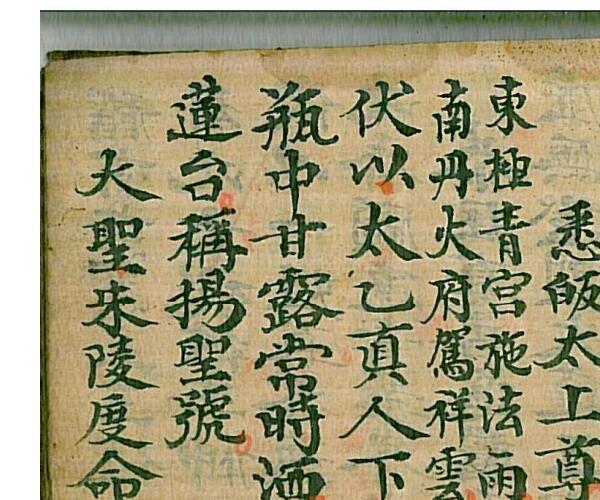 悉皈太上尊
東極青宮施法雨
南丹火府駕祥雲
伏以太乙真人下
瓶中甘露常時洒
蓮台稱揚聖號
大聖朱陵度命